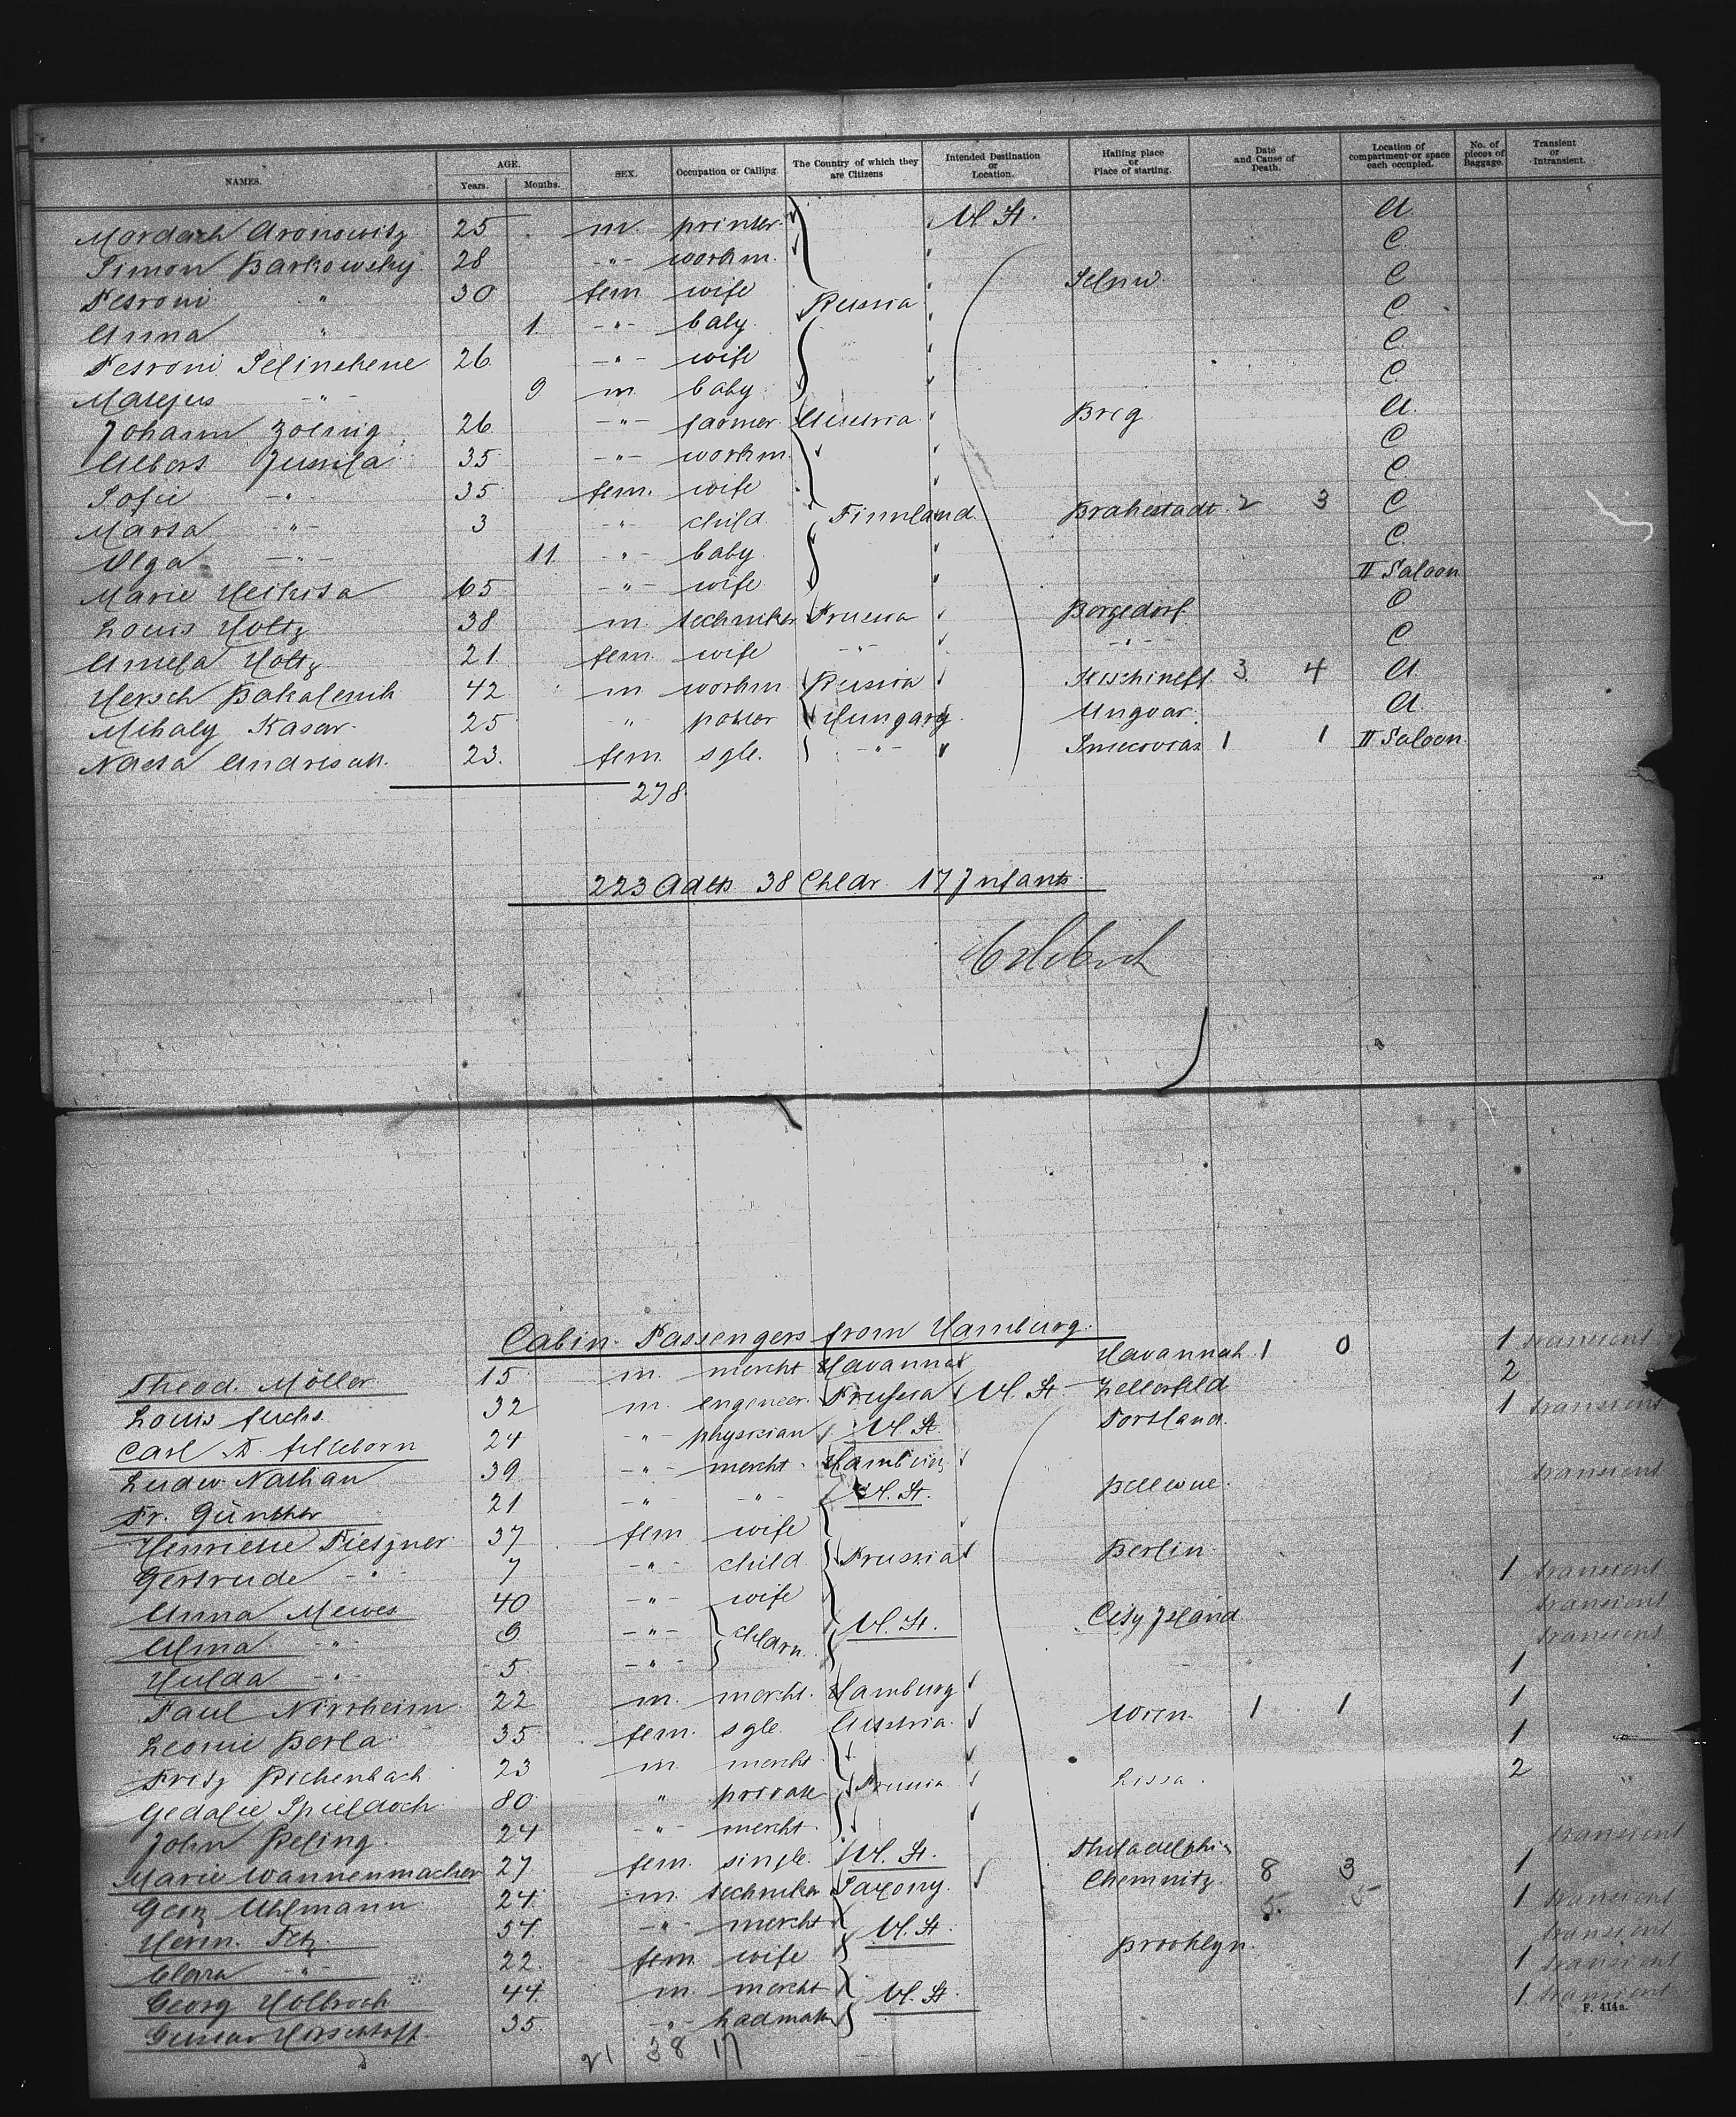 NAMES. AGE. Years. Months. SEX. Occupation or Calling. The Country of which they are Citizens Intended Destination or Location. Hailing place or Place of starting. Date and Cause of Death. Location of compartment or space each occupied. No. of pieces of Baggage. Transient or Intransient.
25 m printer U. St. A.
Simon Barkowsky 28 -"- workm. " C.
30 fem wife Russia " C
Anna " 1. -"- baby. " C
26. -"- wife " C.
-"- 9 m. baby " C.
Johann 26. -"- farmer Austria " Breg A.
Albert 35 -"- workm. " C
Sofie -"- 35 fem. wife " C.
-"- 3 -"- child. Finnland Brahestadt 2 3 C
Olga -"- 11. -"- baby. " C.
Marie 65 -"- wife " II Saloon
Louis Holtz 38 m. techniker Prussia Bergedorf C
Holtz 21. fem. wife -"- -"- C
Hersch 42 m workm Russia Kischineff 3. 4 A.
Mihaly 25 " Hungary. Ungvar. A
23. fem. sgle. -"- 1 1 II Saloon.
278.
223 Adlts 38 Chldr. 17 Infants.
Cabin Passengers from Hamburg.
Theod. Möller 15 m. mercht Havanna Havannah. 1 0 1 transient
Louis Fuchs. 32 m. engeneer. Prussia U. St. Zellerfeld 2
Carl 24 -"- physician U. St. Portland. 1 transient
Nathan 39 -"- mercht. Hamburg
Fr. Günther 21 -"- -"- U. St. Bellevue. transient
37 fem wife
Gertrude -"- 7 -"- child Prussia Berlin.
Anna Mewes 40 -"- wife 1 transient
Alma -"- 9 -"- childrn. U. St. City Island transient
Hulda -"- 5 -"- transient
Paul Nirrheim 22 m. mercht. Hamburg 1
Leonie Perla 35 fem. sgle. Austria. Wien. 1 1 1
Fritz Richenbach 23 m. mercht 1
Gedalie 80 " private Prussia Lissa. 2
John Reling. 24 -"- mercht
Marie Wannenmacher 27. fem. single. U. St. Philadelphia transient
Georg Uhlmann 24. m. techniker Saxony. Chemnitz. 8 3 1
Herm. 54. -"- mercht U. St. 5. 5 1 transient
Clara -"- 22. fem. wife Brooklyn. transient
Georg Holbrock 44. m. mercht 1 transient
Gustav 35. -"- U. St. 1 transient
F. 414a.
21 38 17